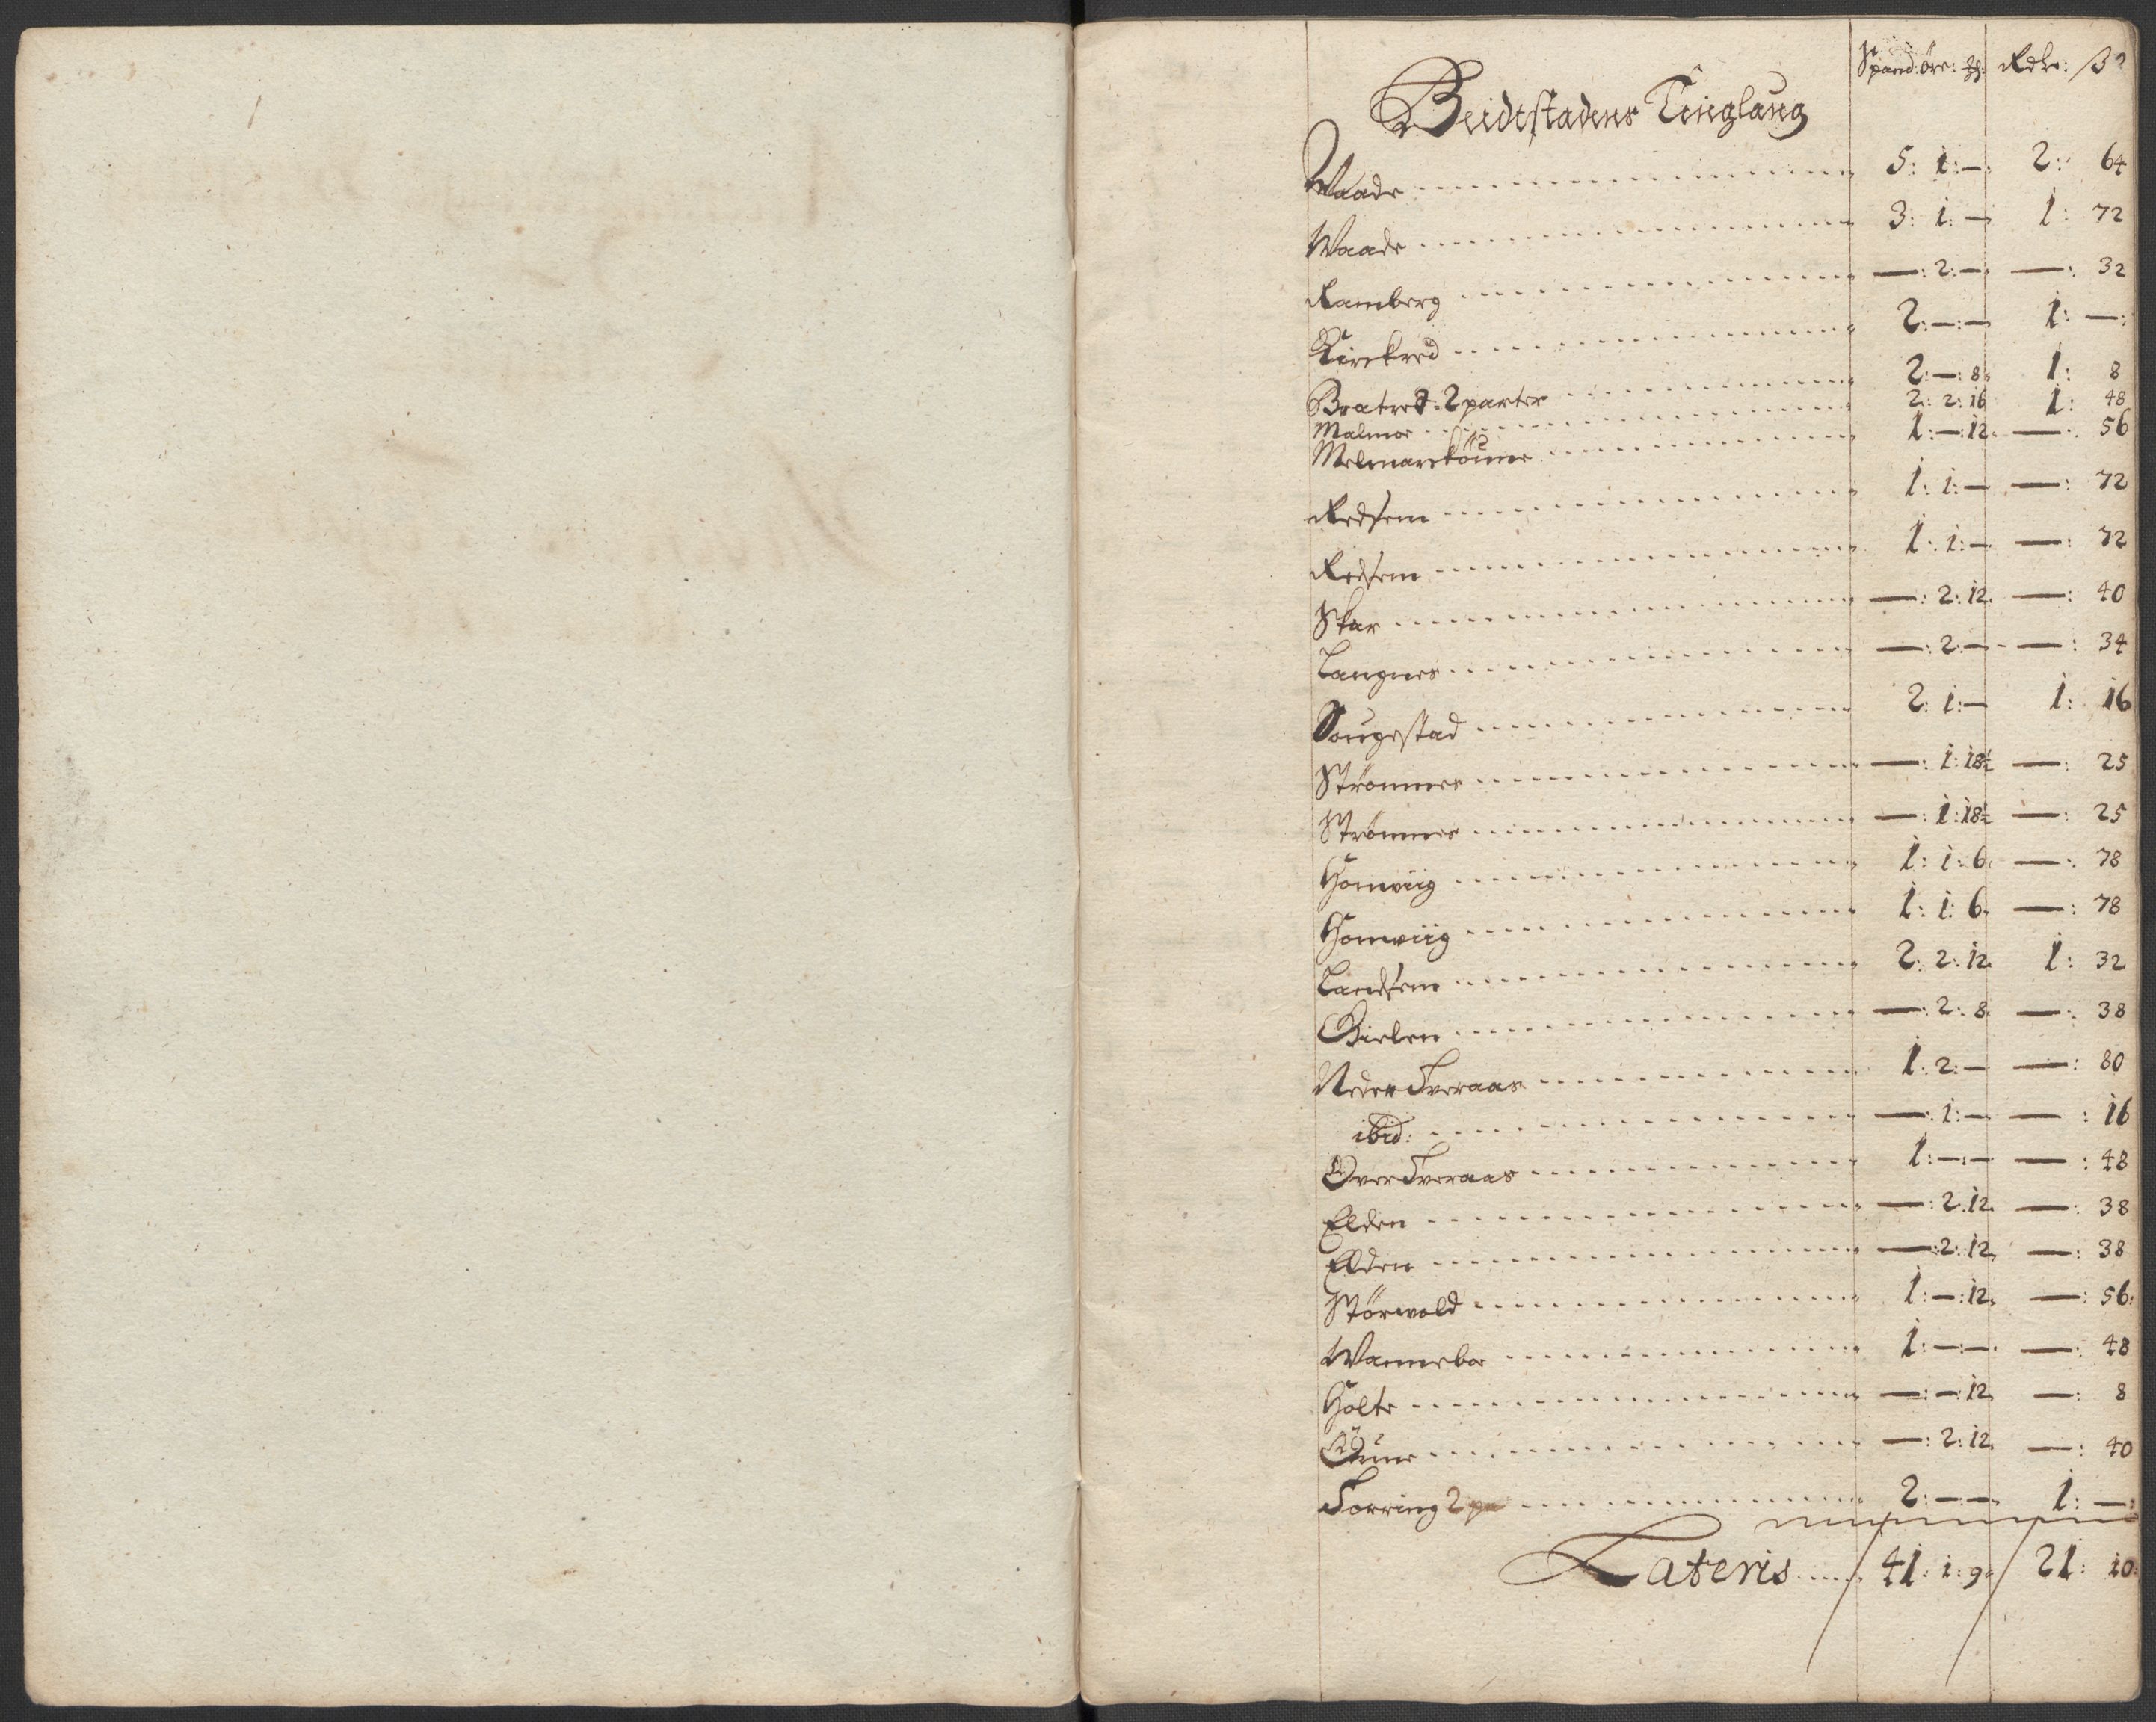 Spand: öre: ₰: Rdlr: ß
Beidstadens Tinglaug
Waade 5: 1: — 2: 64
Waade 3: 1: — 1: 72
Ramberg —: 2: — —: 32
Kirckred 2: —: — 1: —:
Bratred. 2 parter 2: —: 8 1: 8
Malmoe 2: 2: 16 1: 48
1: —: 12 —: 56
Redsem 1: 1: — —: 72
Redsem 1: 1: — —: 72
Skar —: 2: 12 —: 40
Langnes —: 2: — —: 34
Sougestad 2: 1: — 1: 16
Strömmes —: 1: 18½ —: 25
Strömmes —: 1: 18½ —: 25
Homviig 1: 1: 6 —: 78
Homwiig 1: 1: 6 —: 78
Landsem 2: 2: 12 1: 32
Bielen —: 2: 8 —: 38
Neder Tveraas 1: 2: — —: 80
ibid: —: 1: — —: 16
Over Tveraas 1: —: — —: 48
Elden —: 2: 12 —: 38
Elden —: 2: 12 —: 38
Störwold 1: —: 12 —: 56
Wannebo 1: —: — —: 48
Holte —: —: 12 —: 8
—: 2: 12 —: 40
Torring 2 pa 2: —: — 1: —:
Lateris 41: 1: 9 21: 10